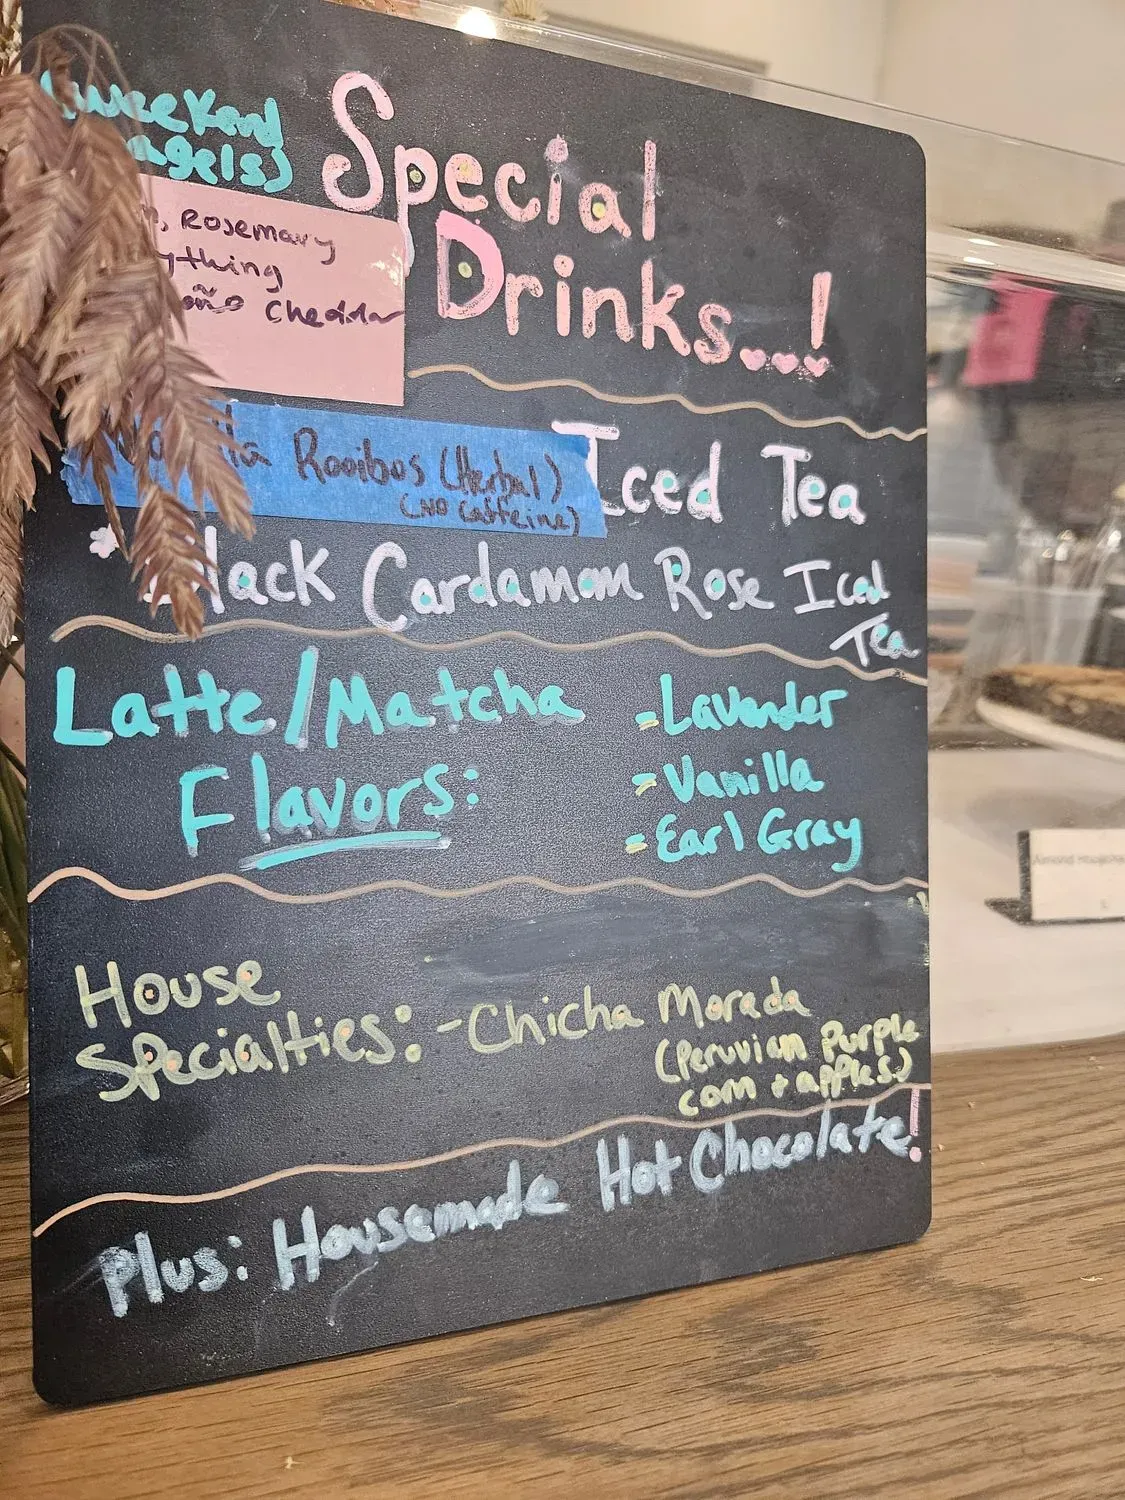 Special
Drinks...!
Rosemary
Cheddar
Rooibos (Herbal)
(NO caffeine)
Iced Tea
* Black Cardamom Rose Iced
Tea
Latte/Matcha
Flavors:
- Lavender
- Vanilla
- Earl Gray
House
Specialties: - Chicha Morada
(Peruvian Purple
corn + apples)
Plus: Housemade Hot Chocolate!